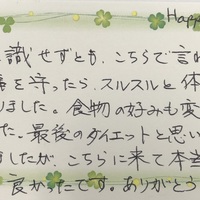 Happ
識せずとも、こちらで言わ
事を守ったら、スルスルと体
りました。食物の好みも変
た。最後のダイエットと思い
ましたが、こちらに来て本当
良かったです。ありがとう